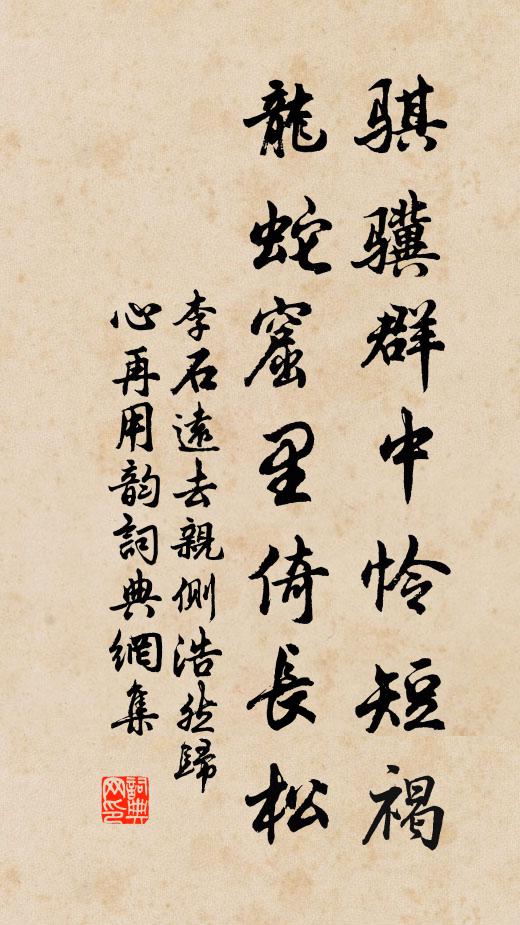 骐骥群中怜短褐
龍蛇窟里倚長松
李石遠去親側浩然歸
心再用韵詞典網集
詞典
网印